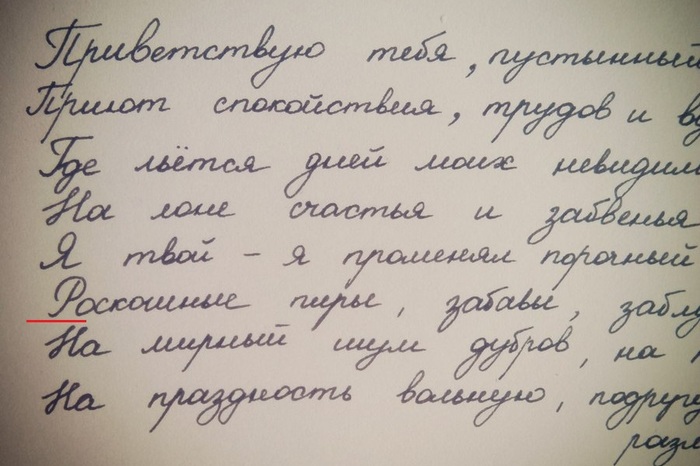 Приветствую тебя, пустынный
Приют спокойствия, трудов и в
Где льётся дней моих невидим
На лоне счастья и забвенья
Я твой - я променял порочный
Роскошные пиры, забавы, заблу
На мирный шум дубров, на
На праздность вольную, подругу
разм